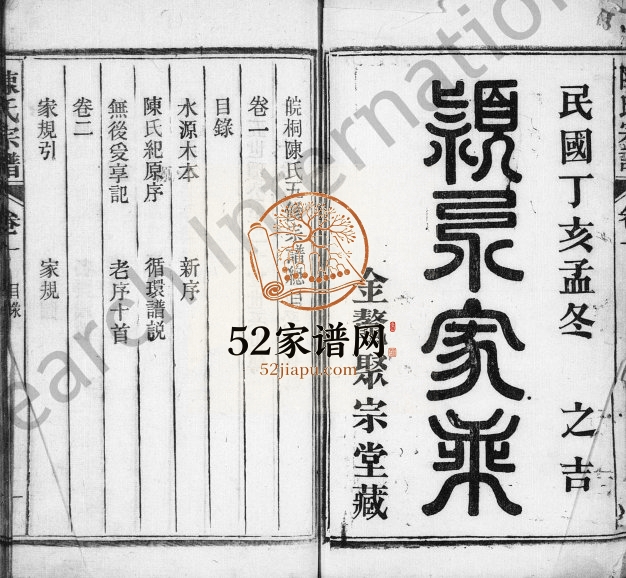 民國丁亥孟冬 之吉
潁川家乘
金鰲聚宗堂藏
皖桐陳氏五修宗譜總目
卷一
目錄
水源木本 新序
陳氏紀原序 循環譜説
無後受享記 老序十首
卷二
家規引 家規
陳氏宗譜 卷一 目錄 一
52家谱网
52jiapu.com
earch Internation